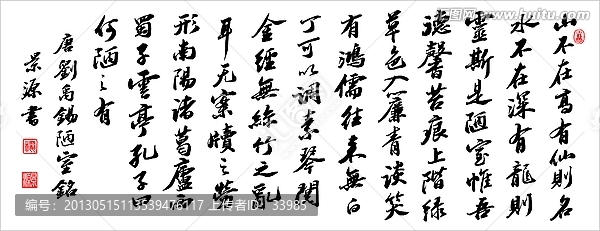 山不在高有仙則名
水不在深有龍則
靈斯是陋室惟吾
德馨苔痕上階綠
草色入簾青談笑
有鴻儒往来無白
丁可以调素琴閱
金經無絲竹之亂
耳无案牘之勞
形南陽諸葛廬西
蜀子雲亭孔子曰
何陋之有
唐劉禹錫陋室銘
景源書
编号：20130515113539476117 上传者ID：33985